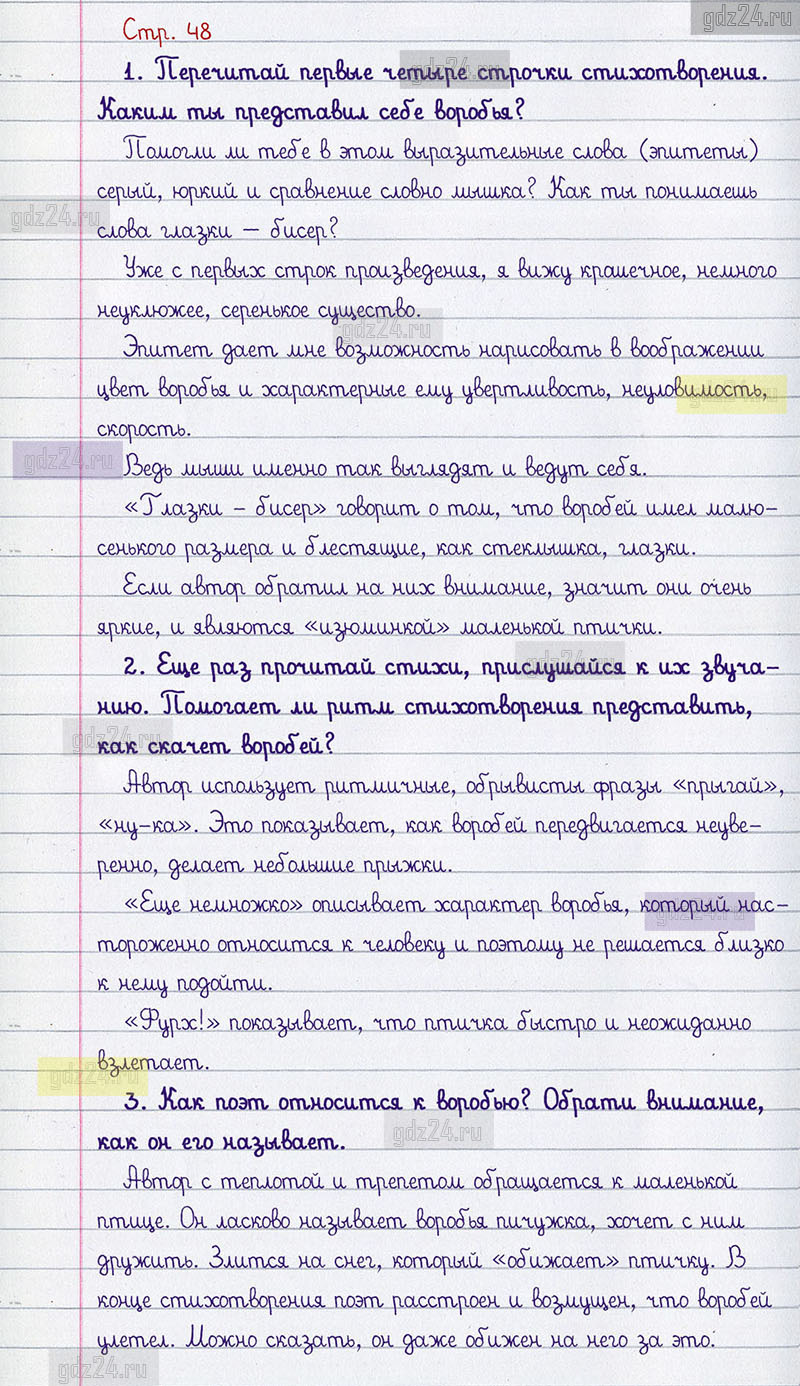 gdz24.ru
Стр. 48
gdz24.ru
1. Перечитай первые четыре строчки стихотворения.
Каким ты представил себе воробья?
Помогли ли тебе в этом выразительные слова (эпитеты)
серый, юркий и сравнение словно мышка? Как ты понимаешь
gdz24.ru
слова глазки – бисер?
Уже с первых строк произведения, я вижу крошечное, немного
неуклюжее, серенькое существо.
gdz24.ru
Эпитет дает мне возможность нарисовать в воображении
цвет воробья и характерные ему увертливость, неуловимость,
gdz24.ru
скорость.
gdz24.ru
Ведь мыши именно так выглядят и ведут себя.
«Глазки – бисер» говорит о том, что воробей имел малю-
сенького размера и блестящие, как стеклышка, глазки.
Если автор обратил на них внимание, значит они очень
яркие, и являются «изюминкой» маленькой птички.
2. Еще раз прочитай стихи, прислушайся к их звуча-
gdz24.ru
нию. Помогает ли ритм стихотворения представить,
gdz24.ru
как скачет воробей?
Автор использует ритмичные, обрывисты фразы «прыгай»,
«ну-ка». Это показывает, как воробей передвигается неуве-
ренно, делает небольшие прыжки.
«Еще немножко» описывает характер воробья, который нас-
gdz24.ru
тороженно относится к человеку и поэтому не решается близко
к нему подойти.
«Фурх!» показывает, что птичка быстро и неожиданно
взлетает.
gdz24.ru
3. Как поэт относится к воробью? Обрати внимание,
как он его называет.
gdz24.ru
Автор с теплотой и трепетом обращается к маленькой
птице. Он ласково называет воробья пичужка, хочет с ним
дружить. Злится на снег, который «обижает» птичку. В
конце стихотворения поэт расстроен и возмущен, что воробей
улетел. Можно сказать, он даже обижен на него за это.
gdz24.ru